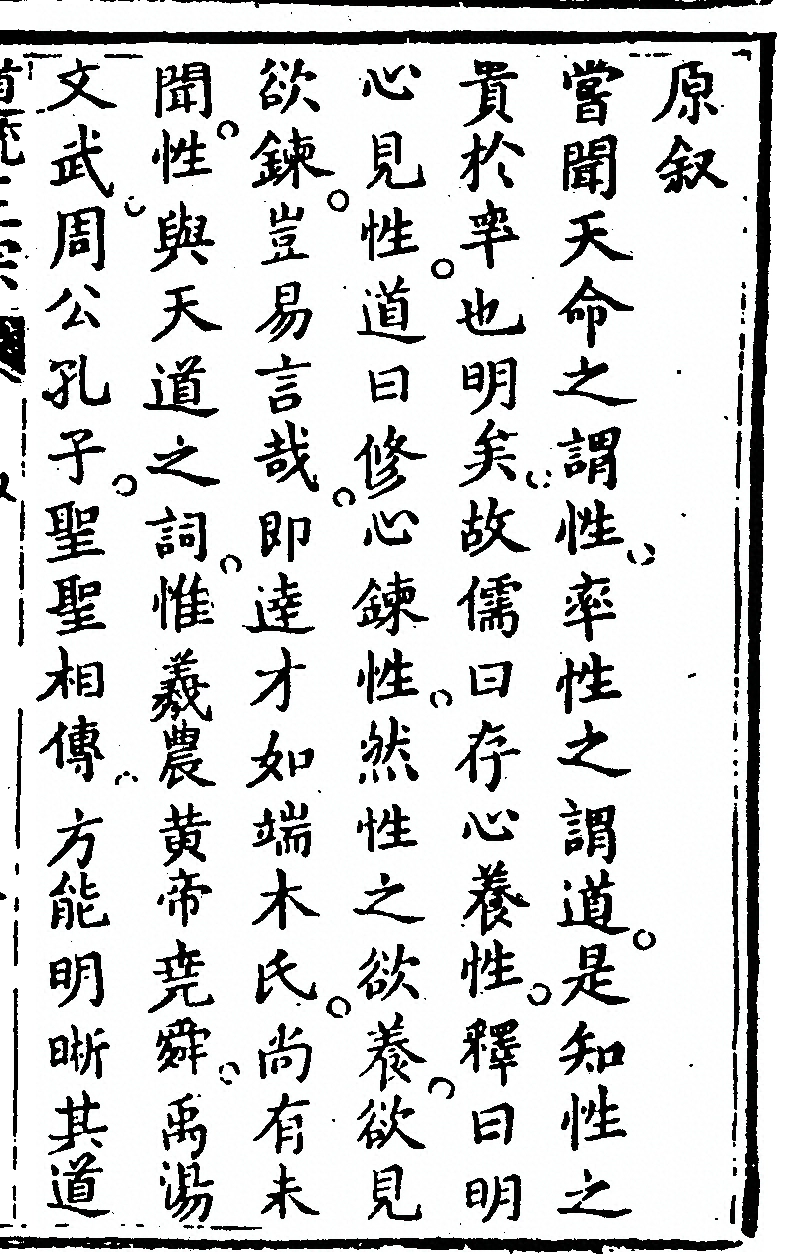 原叙
嘗聞天命之謂性率性之謂道是知性之
貴於率也明矣故儒曰存心養性釋曰明
心見性道曰修心鍊性然性之欲養欲見
欲鍊豈易言哉即達才如端木氏尚有未
聞性與天道之詞惟羲農黄帝尭舜禹湯
文武周公孔子聖聖相傳方能明晰其道